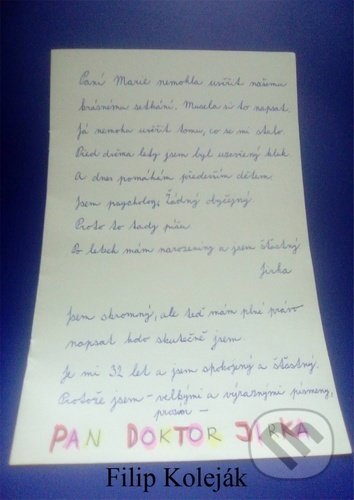 Paní Marie nemohla uvěřit našemu
krásnému setkání. Musela si to napsat.
Já nemohu uvěřit tomu, co se mi stalo.
Před dvěma lety jsem byl uzavřený kluk
A dnes pomáhám především dětem.
Jsem psycholog, Žádný obyčejný.
Proto to tady píšu
Po letech mám narozeniny a jsem šťastný
Jirka
Jsem skromný, ale teď mám plné právo
napsat kdo skutečně jsem
Je mi 32 let a jsem spokojený a šťastný.
Protože jsem - velkými a výraznými písmeny,
prosím -
PAN DOKTOR JIRKA
Filip Koleják